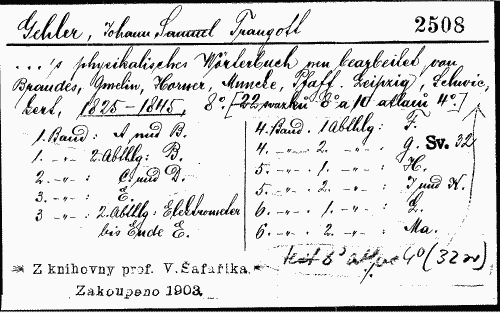 Gehler, Johann Samuel Traugott
2508
...'s physikalisches Wörterbuch neu bearbeitet von
Brandes, Gmelin, Horner, Muncke, Pfaff. Leipzig, Schwic,
kert, 1825-1845, 8°. [22 svazků 8° a 10 atlasů 4°.]
1. Band: A und B.
1. -"- 2. Abthlg: B.
2. -"- : C und D.
3. -"- : E.
3 -"- : 2. Abthlg: Elektrometer
bis Ende E.
4. Band. 1 Abthlg: F.
4. -"- 2. -"- : G. Sv. 32
5. -"- 1. -"- : H.
5. -"- 2. -"- : I und K.
6. -"- 1. -"- : L.
6. -"- 2. -"- : Ma.
text 8° atlas 4° (32 sv)
* Z knihovny prof. V. Šafaříka. *
Zakoupeno 1903.